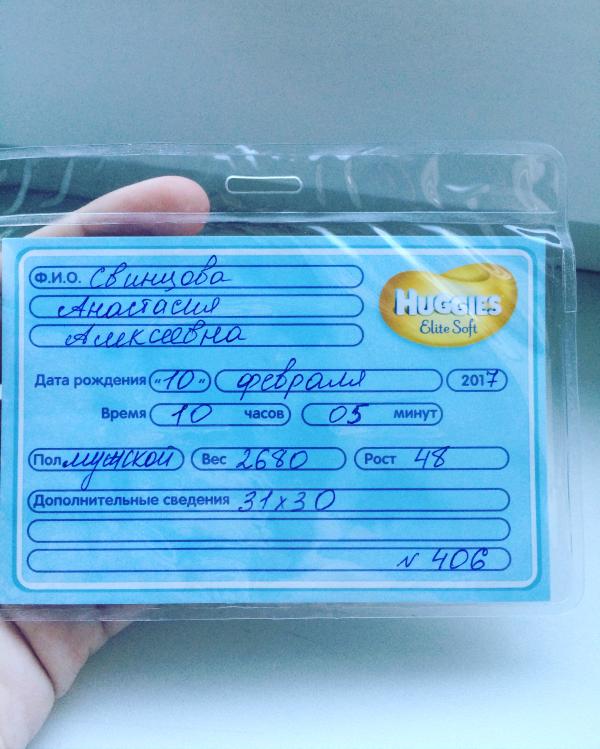 Ф.И.О. Свинцова
Анастасия
Алексеевна
HUGGIES
Elite Soft
Дата рождения "10" февраля 2017
Время 10 часов 05 минут
Пол мужской Вес 2680 Рост 48
Дополнительные сведения 31х30
N 406